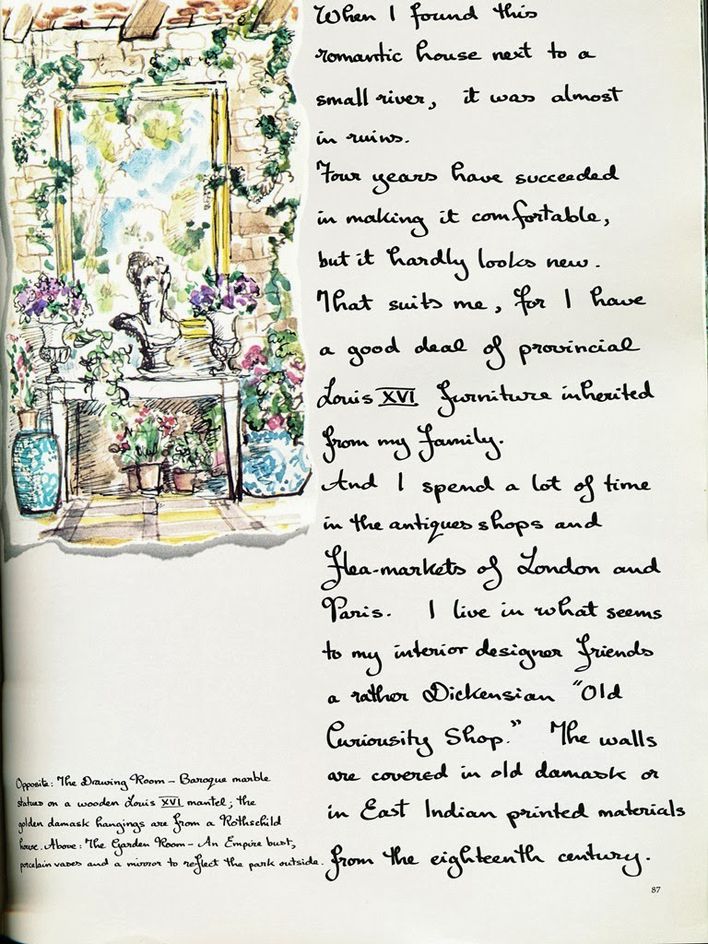 When I found this
romantic house next to a
small river, it was almost
in ruins.
Four years have succeeded
in making it comfortable,
but it hardly looks new.
That suits me, for I have
a good deal of provincial
Louis XVI furniture inherited
from my family.
And I spend a lot of time
in the antiques shops and
flea-markets of London and
Paris. I live in what seems
to my interior designer friends
a rather Dickensian "Old
Curiosity Shop." The walls
are covered in old damask or
in East Indian printed materials
from the eighteenth century.
Opposite: The Drawing Room – Baroque marble
statues on a wooden Louis XVI mantel; the
golden damask hangings are from a Rothschild
house. Above: The Garden Room – An Empire bust,
porcelain vases and a mirror to reflect the park outside.
87